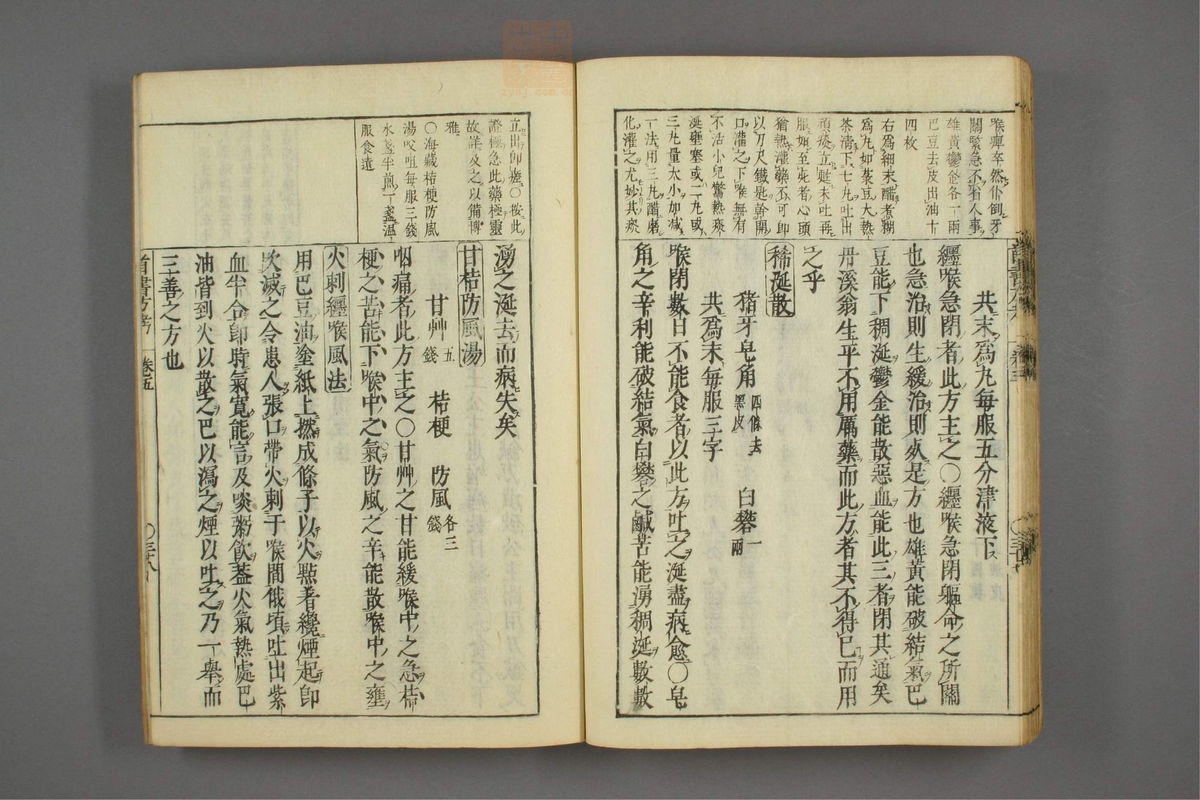 喉痺卒然仆倒牙
關緊急不省人事
雄黃鬱金各一兩
巴豆去皮出油十
四枚
右爲細末醋煮糊
爲丸如菉豆大熱
茶清下七九吐出
頑痰立甦未吐再
服如至死者心頭
猶熱灌藥不可即
以刀尺鐵匙斡開
口灌之下喉無有
不活小兒驚熱痰
涎壅塞或二丸或
三丸量大小加減
一法用三丸醋磨
化灌之尤妙其痰
共末爲丸每服五分津液下
纏喉急閉者此方主之〇纏喉急閉軀命之所關
也急治則生緩治則死是方也雄黃能破結氣巴
豆能下稠涎鬱金能散惡血能此三者閉其通矣
丹溪翁生平不用厲藥而此方者其不得已而用
之乎
稀涎散
猪牙皂角 四條去黑皮 白礬 一兩
共爲末每服三字
喉閉數日不能食者以此方吐之涎盡病愈〇皂
角之辛利能破結氣白礬之鹹苦能湧稠涎數數
立出卽瘥〇按此
證極急此藥極靈
故詳及之以備博
雅
〇海藏桔梗防風
湯㕮咀每服三錢
水盞半煎一盞溫
服食遠
湧之涎去而病失矣
甘桔防風湯
甘艸 五錢 桔梗 防風 各三錢
咽痛者此方主之〇甘艸之甘能緩喉中之急桔
梗之苦能下喉中之氣防風之辛能散喉中之壅
火刺纏喉風法
用巴豆油塗紙上撚成條子以火㸃着纔煙起卽
吹滅之令患人張口帶火刺于喉間俄頃吐出紫
血半合卽時氣寬能言及啖粥飲葢火氣熱處巴
油皆到火以散之巴以瀉之煙以吐之乃一舉而
三善之方也
首書方考 卷五 〇三十八